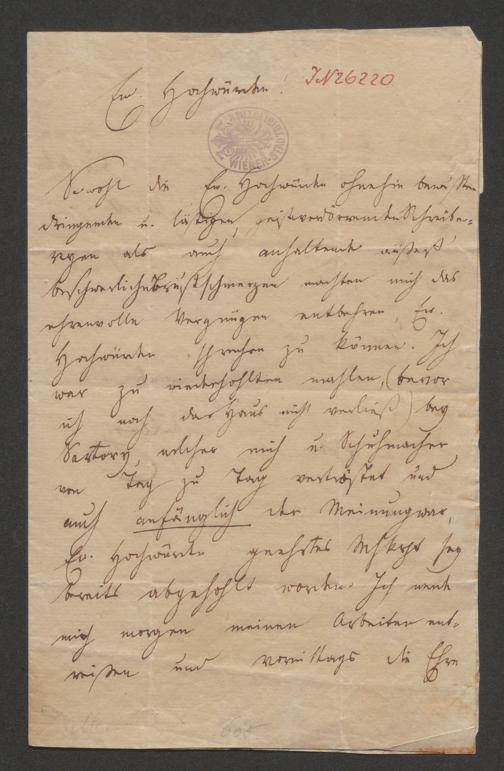 Ew. Hochwürden!
IN 26220
WIENER STADT
Sowohl die Ew. Hochwürden ohnehin bewußten
dringenden u. lästigen, geistverdörrenden Schreibe-
reyen als auch anhaltende äußerst
beschwerliche Brustschmerzen machten mich das
ehrenvolle Vergnügen entbehren, Ew.
Hochwürden sprechen zu können. Ich
war zu wiederhohlten mahlen, (bevor
ich noch das Haus nicht verließ) bey
Sartory welcher mich u. Schuhmacher
von Tag zu Tag vertröstet und
auch anfänglich der Meinung war,
Ew. Hochwürden geehrtes Mskrpt sey
bereits abgehohlt worden. Ich werde
mich morgen meinen Arbeiten ent-
reißen und vormittags die Ehre
605